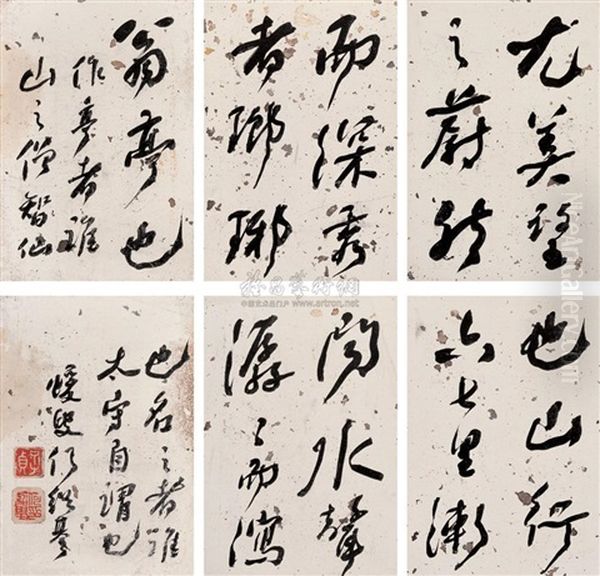 尤美望
之蔚然
而深秀
者瑯琊
也山行
六七里漸
聞水聲
潺〻而瀉
翁亭也
作亭者誰
山之僧智仙
也名之者誰
太守自謂也
蝯叟何紹基
子貞
www.artron.net
NiceArtGallery.com